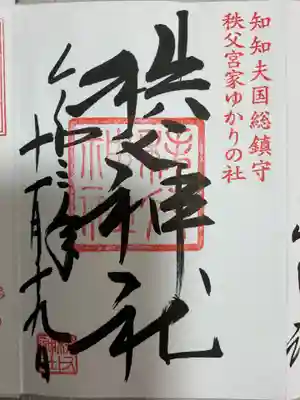 知知夫国総鎮守
秩父宮家ゆかりの社
秩父神社
令和三年
十一月十九日